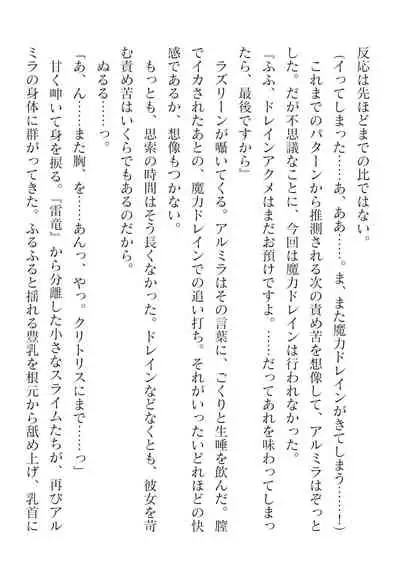 反応は先ほどまでの比ではない。
(イってしまった……あ、ああ……。ま、また魔力ドレインがきてしまう………!)
これまでのパターンから推測される次の責め苦を想像して、アルミラはぞっと
した。だが不思議なことに、今回は魔力ドレインは行われなかった。
『ふふ、ドレインアクメはまだお預けですよ。……だってあれを味わってしまっ
たら、最後ですから』
ラズリーンが囁いてくる。アルミラはその言葉に、ごくりと生唾を飲んだ。膣
でイカされたあとの、魔力ドレインでの追い打ち。それがいったいどれほどの快
感であるか、想像もつかない。
もっとも、思索の時間はそう長くなかった。ドレインなどなくとも、彼女を苛
む責め苦はいくらでもあるのだから。
ぬるる……っ。
「あ、ん……また胸、を……あんっ、やっ。クリトリスにまで……っ」
甘く呻いて身を捩る。『雷竜』から分離した小さなスライムたちが、再びアル
ミラの身体に群がってきた。ふるふると揺れる豊乳を根元から舐め上げ、乳首に